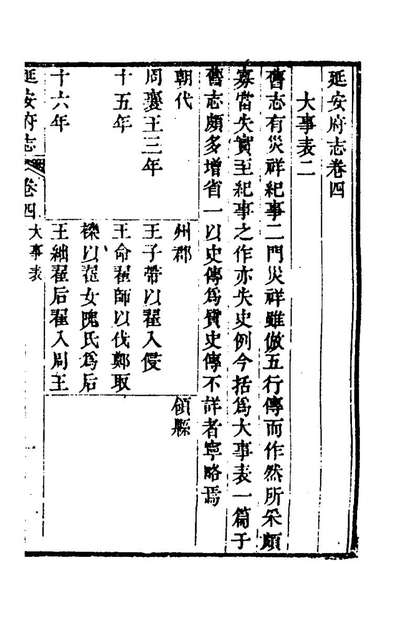 延安府志卷四
大事表二
舊志有災祥紀事二門災祥雖倣五行傳而作然所采頗
寡當失實至紀事之作亦失史例今括爲大事表一篇于
舊志頗多增省一以史傳爲質史傳不詳者寧略焉
朝代 州郡 領縣
周襄王三年 王子帶以翟入侵
十五年 王命翟師以伐鄭取
櫟以翟女隗氏爲后
十六年 王絀翟后翟入周王
延安府志 卷四 大事表